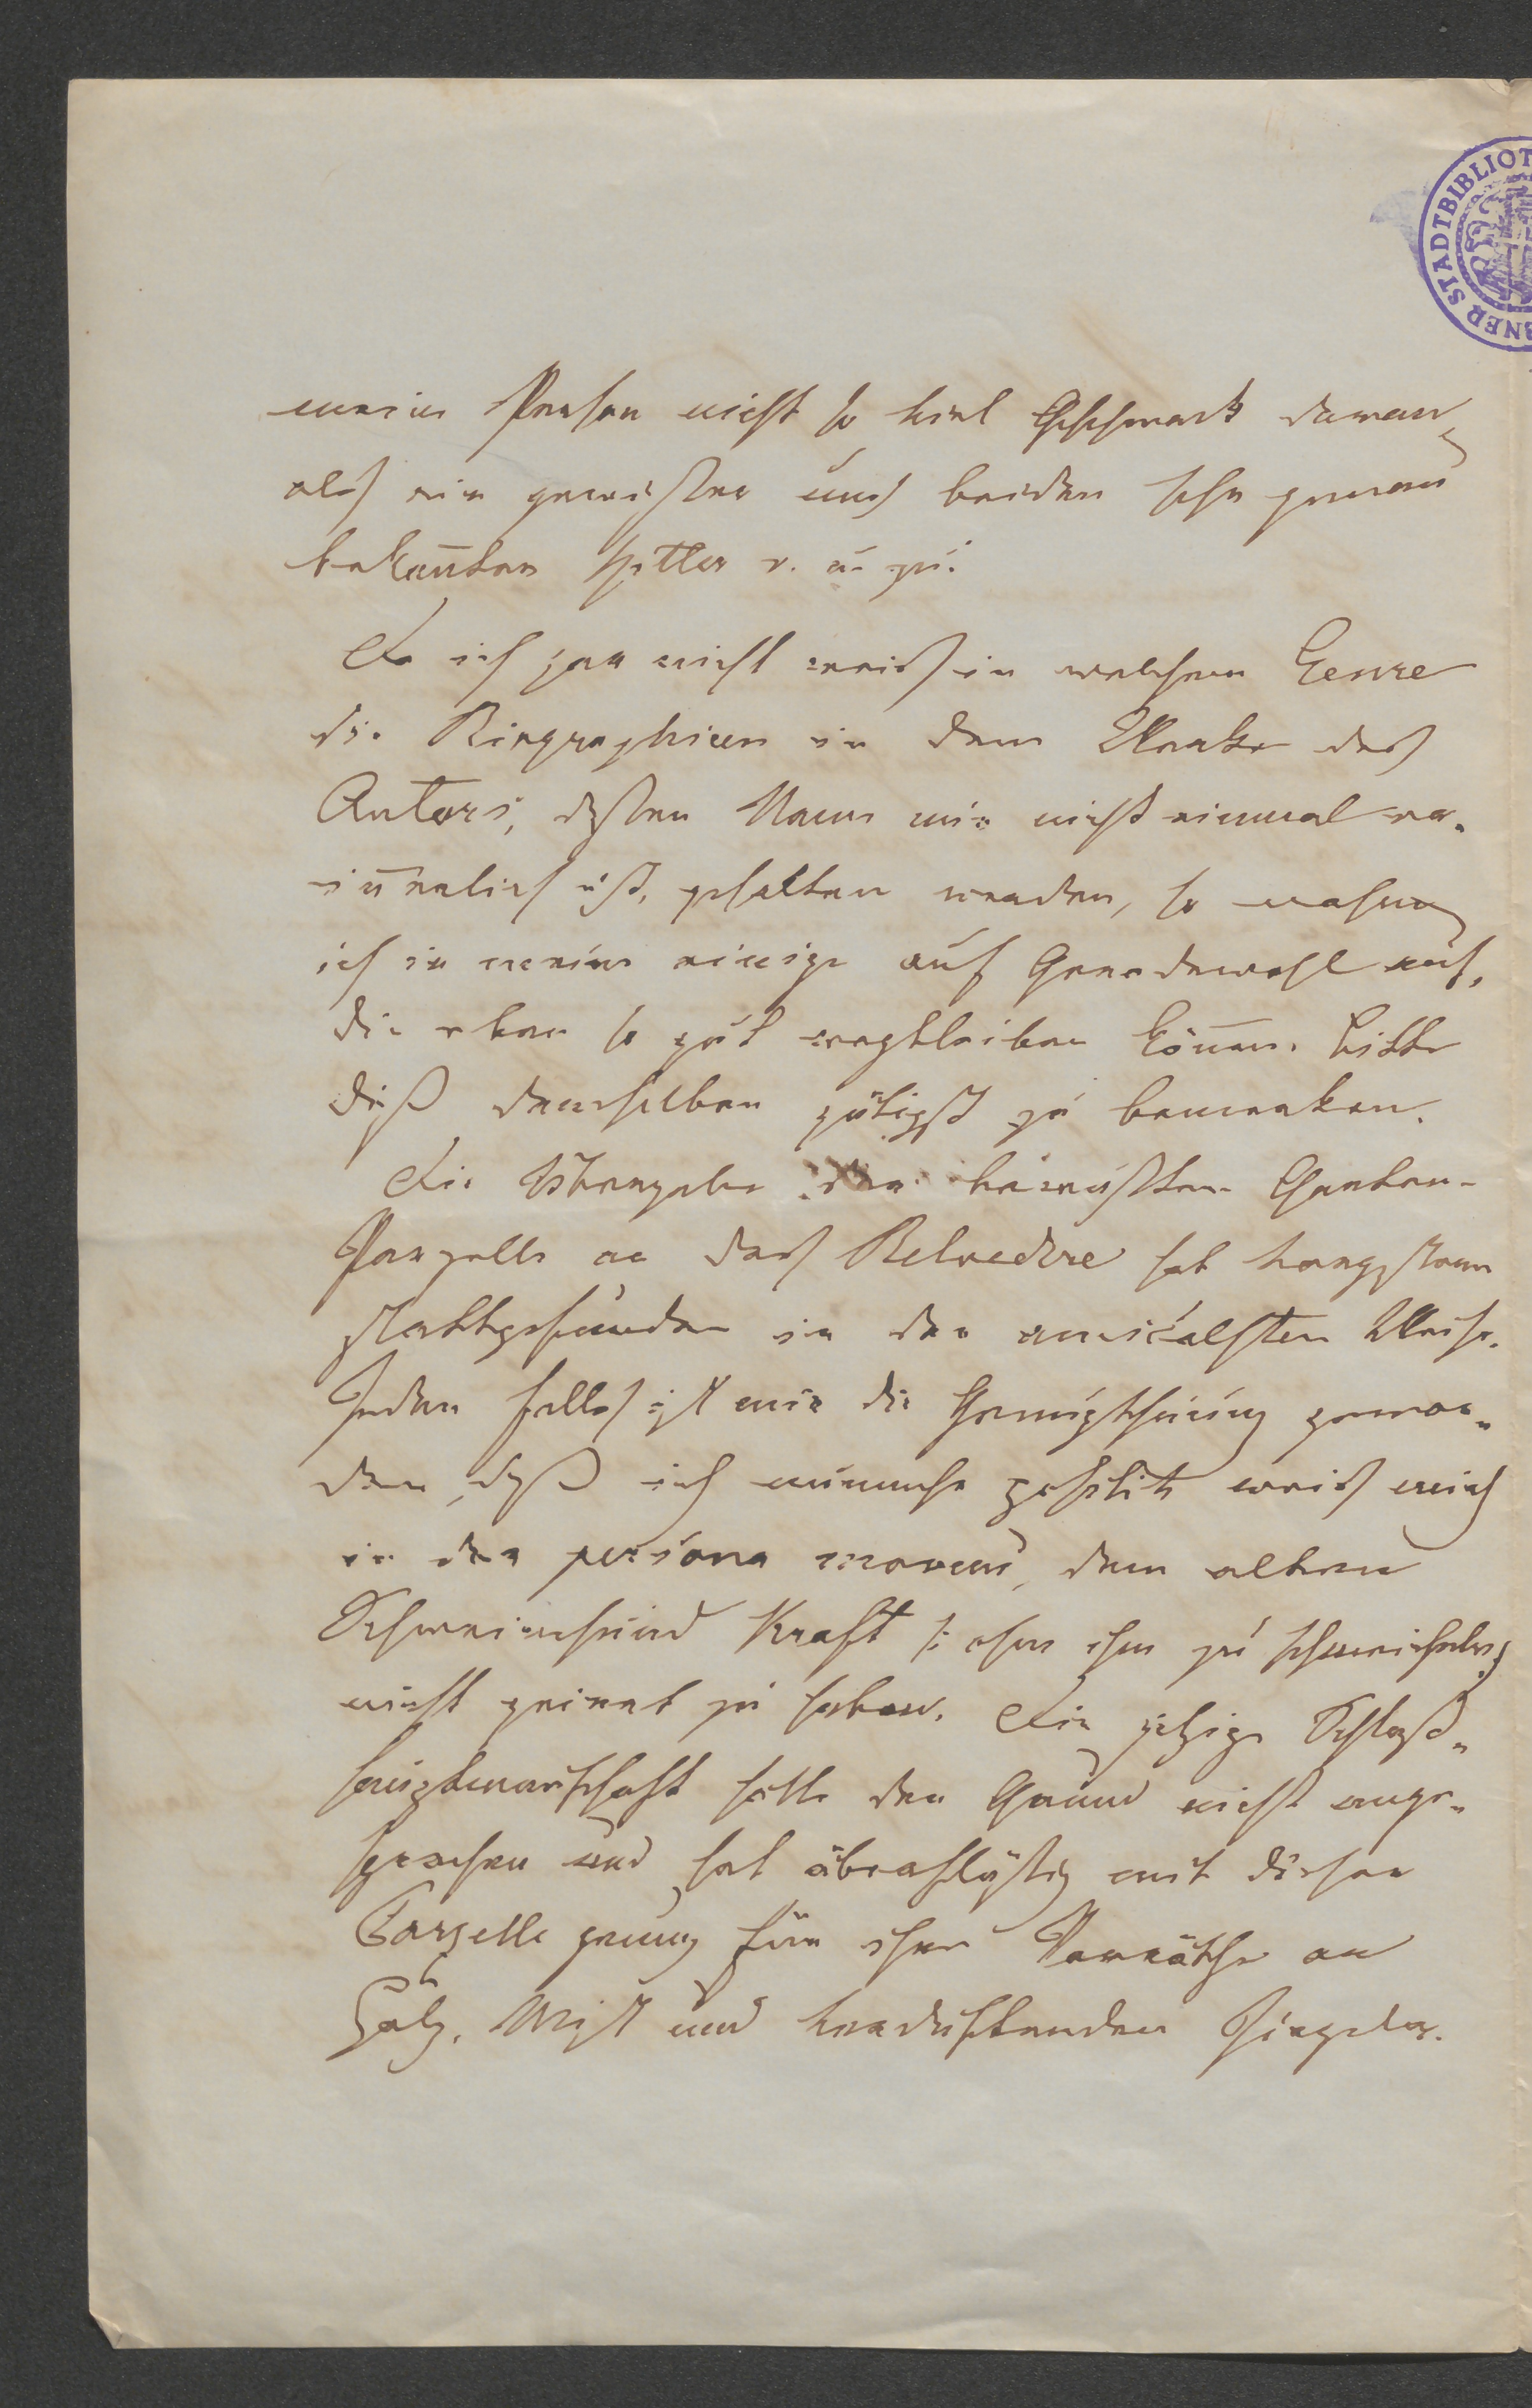 meine Person nicht so viel Geschmack daran,
als ein gewisser uns beiden sehr genau
bekannter v. u. zu.
Da ich gar nicht weiß in welchem Genre
die Biographien in dem Werke des
Autors, dessen Name mir nicht einmal er-
innerlich ist, gehalten werden, so nahm
ich in meine einige auf Geradewohl auf,
die eben so gut wegbleiben können. Bitte
dieß demselben gütigst zu bemerken.
Die Übergabe der bewußten Garten-
Parzelle an das Belvedere hat vorgestern
stattgefunden in der amicalsten Weise.
Jeden Falls ist mir die Genugthuung gewor-
den, daß ich nunmehr weiß mich
in der persona movens, dem alten
Schweinehund Kraft /: ohne ihm zu schmeicheln :/
nicht geirrt zu haben. Die jetzige Schloß-
hauptmannschaft hätte den Grund nicht ange-
sprochen und hat überflüssig mit dieser
Parzelle genug für ihre Vorräthe an
Holz, Mist und verduftenden Ziegeln.
STADTBIBLIOT